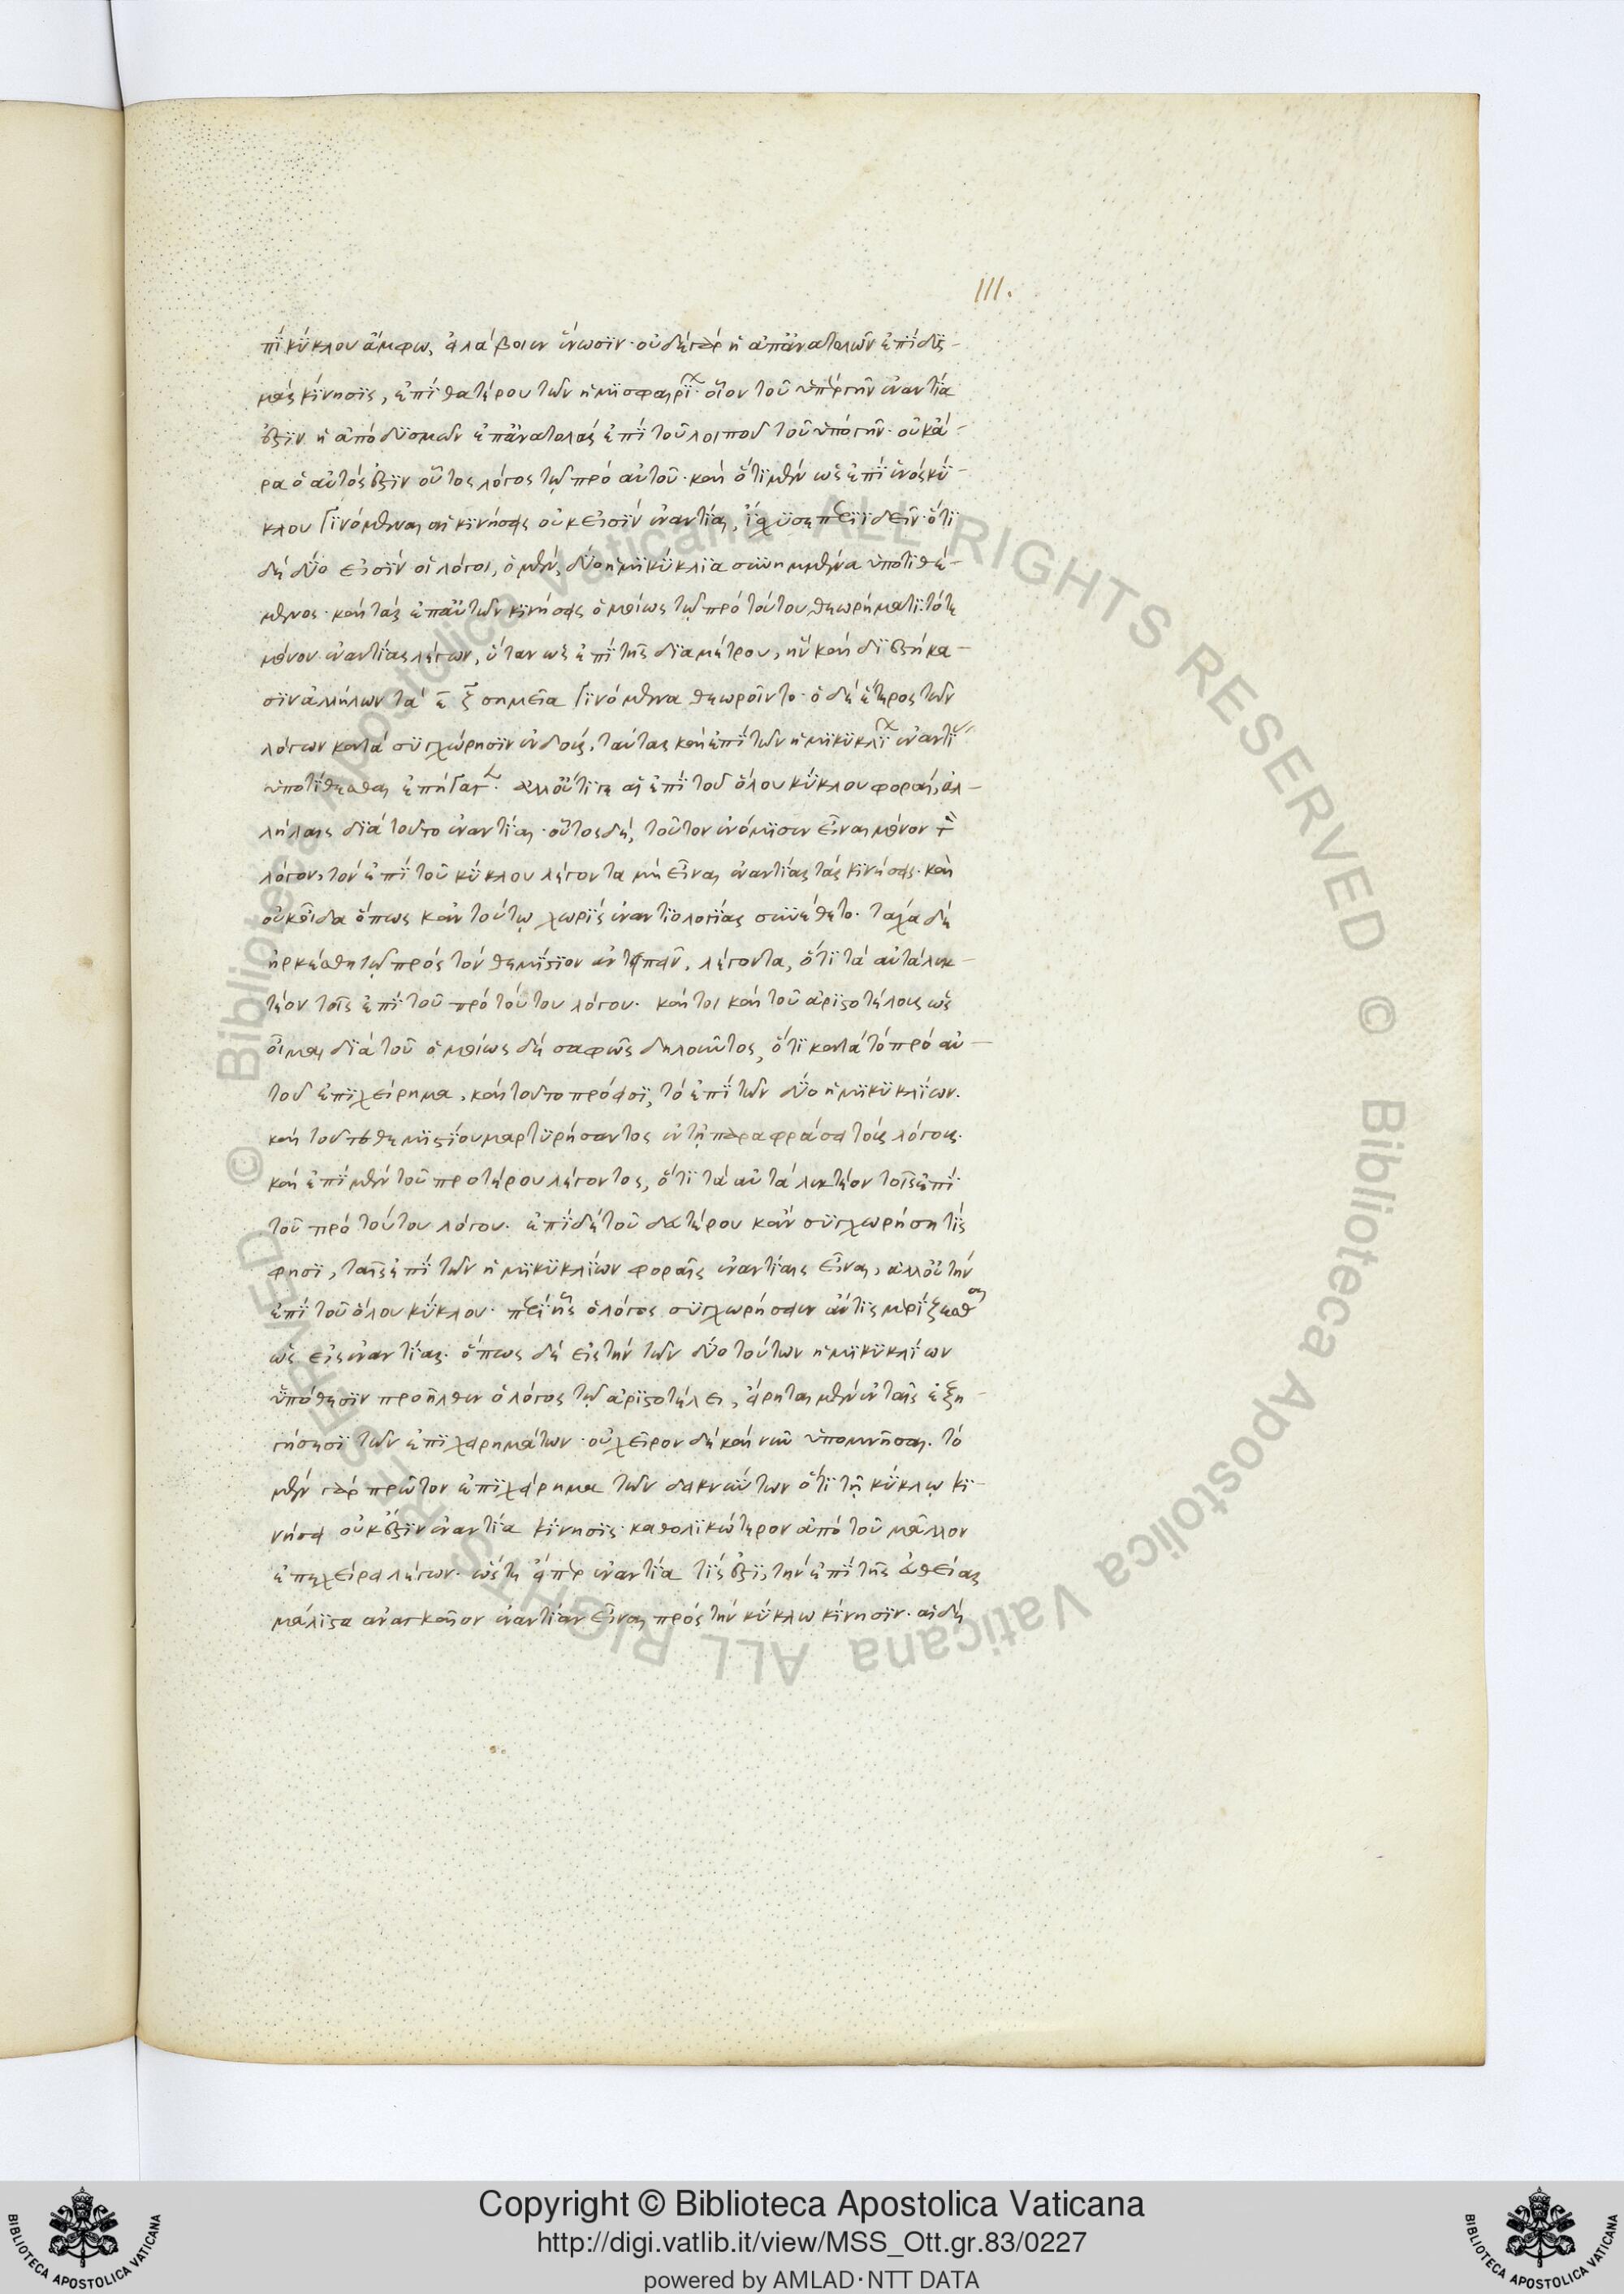 111.
πὶ κύκλου ἄμφω, εἰ λάβοιεν ἕνωσιν· οὐδὲ γὰρ ἡ ἀπ' ἀνατολῶν ἐπὶ δυσ-
μὰς κίνησις, ἐπὶ θατέρου τῶν ἡμισφαιρί· οἷον τοῦ ὑπὲρ γῆν ἐναντία
ἐστὶν ἡ ἀπὸ δυσμῶν ἐπ' ἀνατολὰς ἐπὶ τοῦ λοιποῦ τοῦ ὑπὸ γῆν· οὐκ ἄ-
ρα ὁ αὐτός ἐστιν οὗτος λόγος τῷ πρὸ αὐτοῦ· καὶ ὅτι μὲν ὡς ἐπὶ ἑνὸς κύ-
κλου γινόμεναι αἱ κινήσεις οὐκ εἰσὶν ἐναντίαι, ἰσχύσει περιιδεῖν· ὅτι
δὲ δύο εἰσὶν οἱ λόγοι, ὁ μὲν, δύο ἡμικύκλια συνημμένα ὑποτιθέ-
μενος· καὶ τὰς ἐπ' αὐτῶν κινήσεις ὁμοίως τῷ πρὸ τούτου θεωρήματι· τότε
μόνον ἐναντίας λέγων, ὅταν ὡς ἐπὶ τῆς διαμέτρου, ἣν καὶ διεστήκα-
σιν ἀλλήλων τὰ ε ζ σημεῖα γινόμενα θεωροῖντο· ὁ δὲ ἕτερος τῶν
λόγων κατὰ συγχώρησιν ἐνδοὺς, ταύτας καὶ ἐπὶ τῶν ἡμικυκλί ἐναντί
ὑποτίθεσθαι ἐπήγαγ· ἀλλ' οὔτι γε αἱ ἐπὶ τοῦ ὅλου κύκλου φοραὶ, ἀλ-
λήλαις διὰ τοῦτο ἐναντίαι· οὗτος δὲ, τοῦτον ἐνόμισεν εἶναι μόνον τὸν
λόγον, τὸν ἐπὶ τοῦ κύκλου λέγοντα μὴ εἶναι ἐναντίας τὰς κινήσεις· καὶ
οὐκ οἶδα ὅπως κἂν τούτῳ χωρὶς ἐναντιολογίας συνέθετο· τάχα δὲ
ἠρκέσθη τῷ πρὸς τὸν θεμίστιον ἀντειπεῖν, λέγοντα, ὅτι τὰ αὐτὰ λεκ-
τέον τοῖς ἐπὶ τοῦ πρὸ τούτου λόγου· καίτοι καὶ τοῦ ἀριστοτέλους ὡς
οἶμαι διὰ τοῦ ὁμοίως δὲ σαφῶς δηλοῦντος, ὅτι κατὰ τὸ πρὸ αὐ-
τοῦ ἐπιχείρημα, καὶ τοῦτο πρόεισι, τὸ ἐπὶ τῶν δύο ἡμικυκλίων.
καὶ τοῦτο θεμιστίου μαρτυρήσαντος ἐν τῇ παραφράσει τοῖς λόγοις·
καὶ ἐπὶ μὲν τοῦ προτέρου λέγοντος, ὅτι τὰ αὐτὰ λεκτέον τοῖς ἐπὶ
τοῦ πρὸ τούτου λόγου· ἐπὶ δὲ τοῦ δατέρου κἂν συγχωρήση τίς
φησι, ταῖς ἐπὶ τῶν ἡμικυκλίων φοραῖς ἐναντίαις εἶναι, ἀλλ' οὐ τὴν
ἐπὶ τοῦ ὅλου κύκλου· περὶ ἧς ὁ λόγος συγχωρήσειεν ἄν τις μερίζεσθαι
ὡς εἰς ἐναντίας· ὅπως δὲ εἰς τὴν τῶν δύο τούτων ἡμικυκλίων
ὑπόθεσιν προῆλθεν ὁ λόγος τῷ ἀριστοτέλει, εἴρηται μὲν ἐν ταῖς ἐξη-
γήσεσι τῶν ἐπιχειρημάτων· οὐ χεῖρον δὲ καὶ νῦν ὑπομνῆσαι. τὸ
μὲν γὰρ πρῶτον ἐπιχείρημα τῶν δεικνύντων ὅτι τῇ κύκλῳ κι-
νήσει οὐκ ἔστιν ἐναντία κίνησις· καθολικώτερον ἀπὸ τοῦ μᾶλλον
ἐπεχείρει λέγων· ὥστε εἴπερ ἐναντία τίς ἐστι, τὴν ἐπὶ τῆς εὐθείας
μάλιστα ἀναγκαῖον ἐναντίαν εἶναι πρὸς τὴν κύκλω κίνησιν· αἱ δὲ
Copyright © Biblioteca Apostolica Vaticana
http://digi.vatlib.it/view/MSS_Ott.gr.83/0227
powered by AMLAD·NTT DATA
© Biblioteca Apostolica Vaticana ALL RIGHTS RESERVED © Biblioteca Apostolica Vaticana ALL RIGHTS RESERVED
BIBLIOTECA APOSTOLICA VATICANA
BIBLIOTECA APOSTOLICA VATICANA